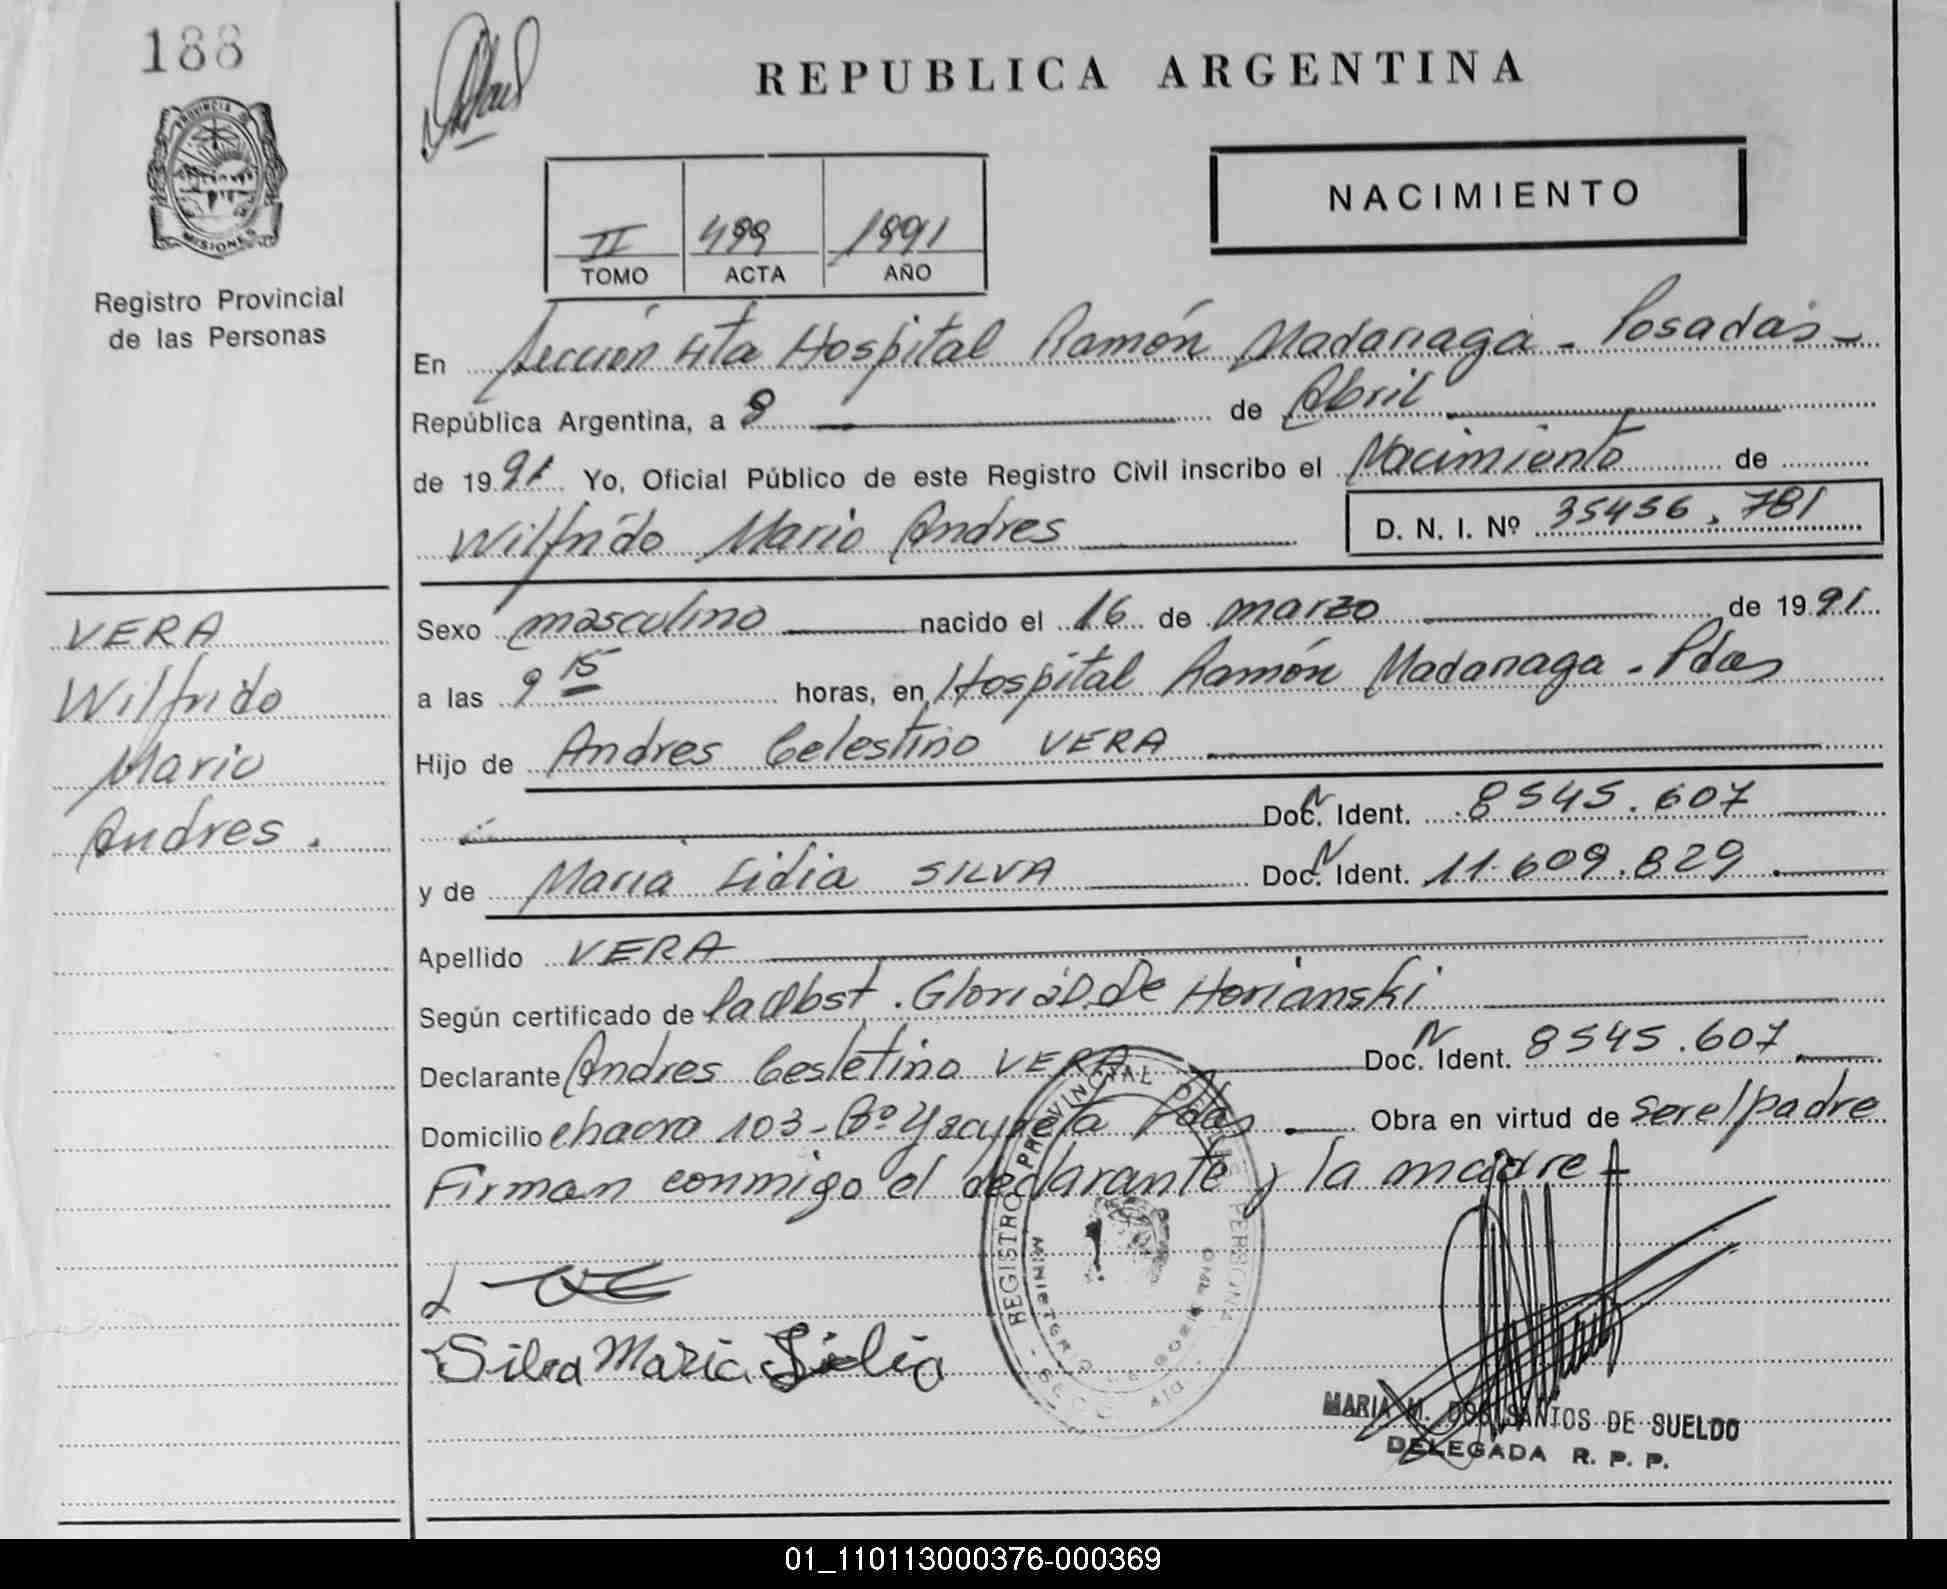 188
REPUBLICA ARGENTINA
PROVINCIA DE
MISIONES
Registro Provincial
de las Personas
NACIMIENTO
II 499 1991
TOMO ACTA AÑO
En Sección 4ta Hospital Ramón Madariaga - Posadas -
República Argentina, a 8 de Abril
de 1991 Yo, Oficial Público de este Registro Civil inscribo el Nacimiento de
Wilfrido Mario Andres D. N. I. Nº 35456.781
VERA
Wilfrido
Mario
Andres.
Sexo masculino nacido el 16 de marzo de 1991
a las 9 15 horas, en Hospital Ramón Madariaga - Pdas
Hijo de Andres Celestino VERA
Doc. Ident. 8545.607
y de Maria Lidia SILVA Doc. Ident. 11.609.829
Apellido VERA
Según certificado de la Obst. Gloria D. De Horianski
Declarante Andres Cesletino VERA Doc. Ident. 8545.607
Domicilio chacra 103 - Bº Yacyreta Pdas Obra en virtud de ser el padre
Firman conmigo el declarante y la madre
REGISTRO PROVINCIAL DE LAS PERSONAS
Silva Maria Lidia
MARIA M. DOS SANTOS DE SUELDO
DELEGADA R. P. P.
01_110113000376-000369